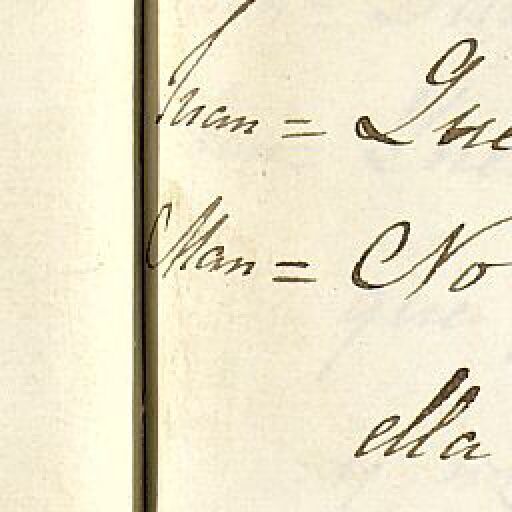 Juan = Que
Man = No
ella